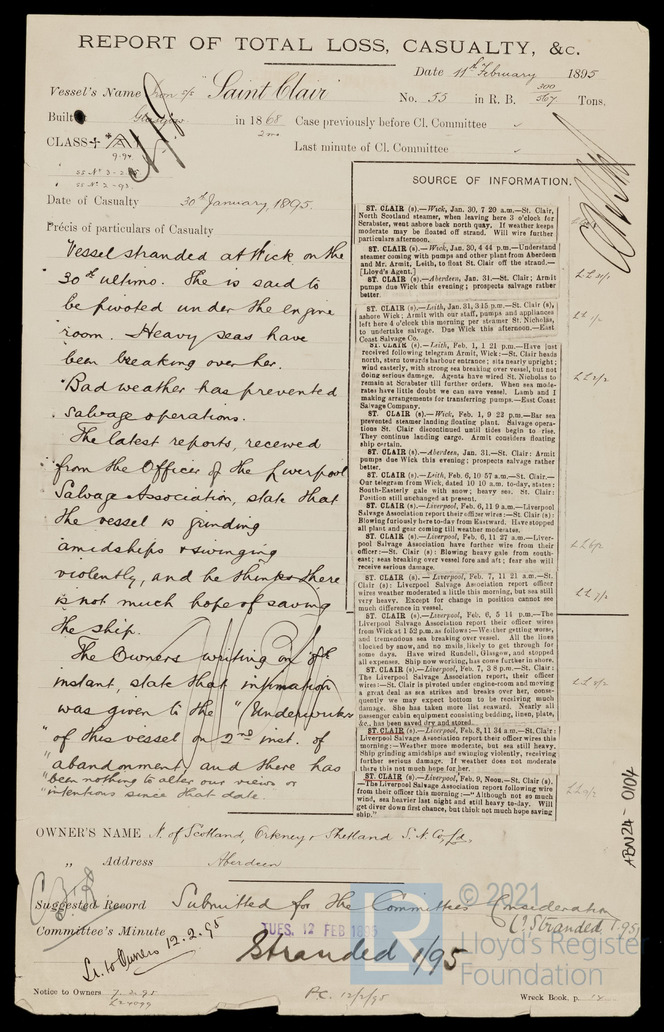 REPORT OF TOTAL LOSS, CASUALTY, &c.
Date 11th February 1895
Vessel's Name Iron s/s "Saint Clair
No. 55 in R. B. 300 567 Tons.
Built Glasgow in 1868 2mo Case previously before Cl. Committee
CLASS + A
9.94
Last minute of Cl. Committee
ss No 2-93.
Date of Casualty 30th January, 1895.
Précis of particulars of Casualty
Vessel stranded at Wick on the
30th ultimo. She is said to
be pivoted under the engine
room. Heavy seas have
been breaking over her.
Bad weather has prevented
salvage operations.
The latest reports, received
from the Officer of the Liverpool
Salvage Association, state that
the vessel is grinding
amidships & swinging
violently, and he thinks there
is not much hope of saving
the ship.
The Owners writing on
instant, state that information
was given to the "Underwriters
"of this vessel on 2nd inst. of
"abandonment and there has
"been nothing to alter our views or
"intentions since that date.
SOURCE OF INFORMATION.
ST. CLAIR (s).—Wick, Jan. 30, 7 20 a.m.—St. Clair,
North Scotland steamer, when leaving here 3 o'clock for
Scrabster, went ashore back north quay. If weather keeps
moderate may be floated off strand. Will wire further
particulars afternoon.
ST. CLAIR (s).—Wick, Jan. 30, 4 44 p.m.—Understand
steamer coming with pumps and other plant from Aberdeen
and Mr. Armit, Leith, to float St. Clair off the strand.—
[Lloyd's Agent.]
ST. CLAIR (s).—Aberdeen, Jan. 31.—St. Clair; Armit
pumps due Wick this evening; prospects salvage rather
better.
ST. CLAIR (s).—Leith, Jan. 31, 3 15 p.m.—St. Clair (s),
ashore Wick; Armit with our staff, pumps and appliances
left here 4 o'clock this morning per steamer St. Nicholas,
to undertake salvage. Due Wick this afternoon.—East
Coast Salvage Co.
ST. CLAIR (s).—Leith, Feb. 1, 1 21 p.m.—Have just
received following telegram Armit, Wick:—St. Clair heads
north, stern towards harbour entrance; sits nearly upright;
wind easterly, with strong sea breaking over vessel, but not
doing serious damage. Agents have wired St. Nicholas to
remain at Scrabster till further orders. When sea mode-
rates have little doubt we can save vessel. Lamb and I
making arrangements for transferring pumps.—East Coast
Salvage Company.
ST. CLAIR (s).—Wick, Feb. 1, 9 22 p.m.—Bar sea
prevented steamer landing floating plant. Salvage opera-
tions St. Clair discontinued until tides begin to rise.
They continue landing cargo. Armit considers floating
ship certain.
ST. CLAIR (s).—Aberdeen, Jan. 31.—St. Clair: Armit
pumps due Wick this evening; prospects salvage rather
better.
ST. CLAIR (s).—Leith, Feb. 6, 10 57 a.m.—St. Clair.—
Our telegram from Wick, dated 10 10 a.m. to-day, states:
South-Easterly gale with snow; heavy sea. St. Clair:
Position still unchanged at present.
ST. CLAIR (s).—Liverpool, Feb. 6, 11 9 a.m.—Liverpool
Salvage Association report their officer wires:—St. Clair (s):
Blowing furiously here to-day from Eastward. Have stopped
all plant and gear coming till weather moderates.
ST. CLAIR (s).—Liverpool, Feb. 6, 11 27 a.m.—Liver-
pool Salvage Association have further wire from their
officer:—St. Clair (s): Blowing heavy gale from south-
east; seas breaking over vessel fore and aft; fear she will
receive serious damage.
ST. CLAIR (s).—Liverpool, Feb. 7, 11 21 a.m.—St.
Clair (s): Liverpool Salvage Association report their officer
wires weather moderated a little this morning, but sea still
over heavy. Except for change in position cannot see
much difference in vessel.
ST. CLAIR (s).—Liverpool, Feb. 6, 5 14 p.m.—The
Liverpool Salvage Association report their officer wires
from Wick at 1 52 p.m. as follows:—Weather getting worse,
and tremendous sea breaking over vessel. All the lines
blocked by snow, and no mails, likely to get through for
some days. Have wired Rundell, Glasgow, and stopped
all expenses. Ship now working, has come further in shore.
ST. CLAIR (s).—Liverpool, Feb. 7, 3 8 p.m.—St. Clair:
The Liverpool Salvage Association report, their officer
wires:—St. Clair is pivoted under engine-room and moving
great deal as sea strikes and breaks over her, conse-
quently we may expect bottom to be receiving much
damage. She has taken more list seaward. Nearly all
passenger cabin equipment consisting bedding, linen, plate,
&c., has been saved dry and stored.
ST. CLAIR (s).—Liverpool, Feb. 8, 11 34 a.m.—St. Clair:
Liverpool Salvage Association report their officer wires this
morning:—Weather more moderate, but sea still heavy.
Ship grinding amidships and swinging violently, receiving
further serious damage. If weather does not moderate
there this not much hope for her.
ST. CLAIR (s).—Liverpool, Feb. 9, Noon.—St. Clair (s).
—The Liverpool Salvage Association report following wire
from their officer this morning:—"Although not so much
wind, sea heavier last night and still heavy to-day. Will
get diver down first, but think not much hope saving
ship."
ABN24-0104
OWNER'S NAME N. of Scotland, Orkney & Shetland S. N. Co, Ld.
„ Address Aberdeen
Suggested Record Submitted for the Committee's Consideration
(? Stranded 1.95)
Committee's Minute TUES. 12 FEB 1895
Stranded 1/95
Lr. to Owners 12.2.95
Notice to Owners 7.2.95
P.C. 12/2/95
Wreck Book, p.
© 2021
Lloyd's Register
Foundation